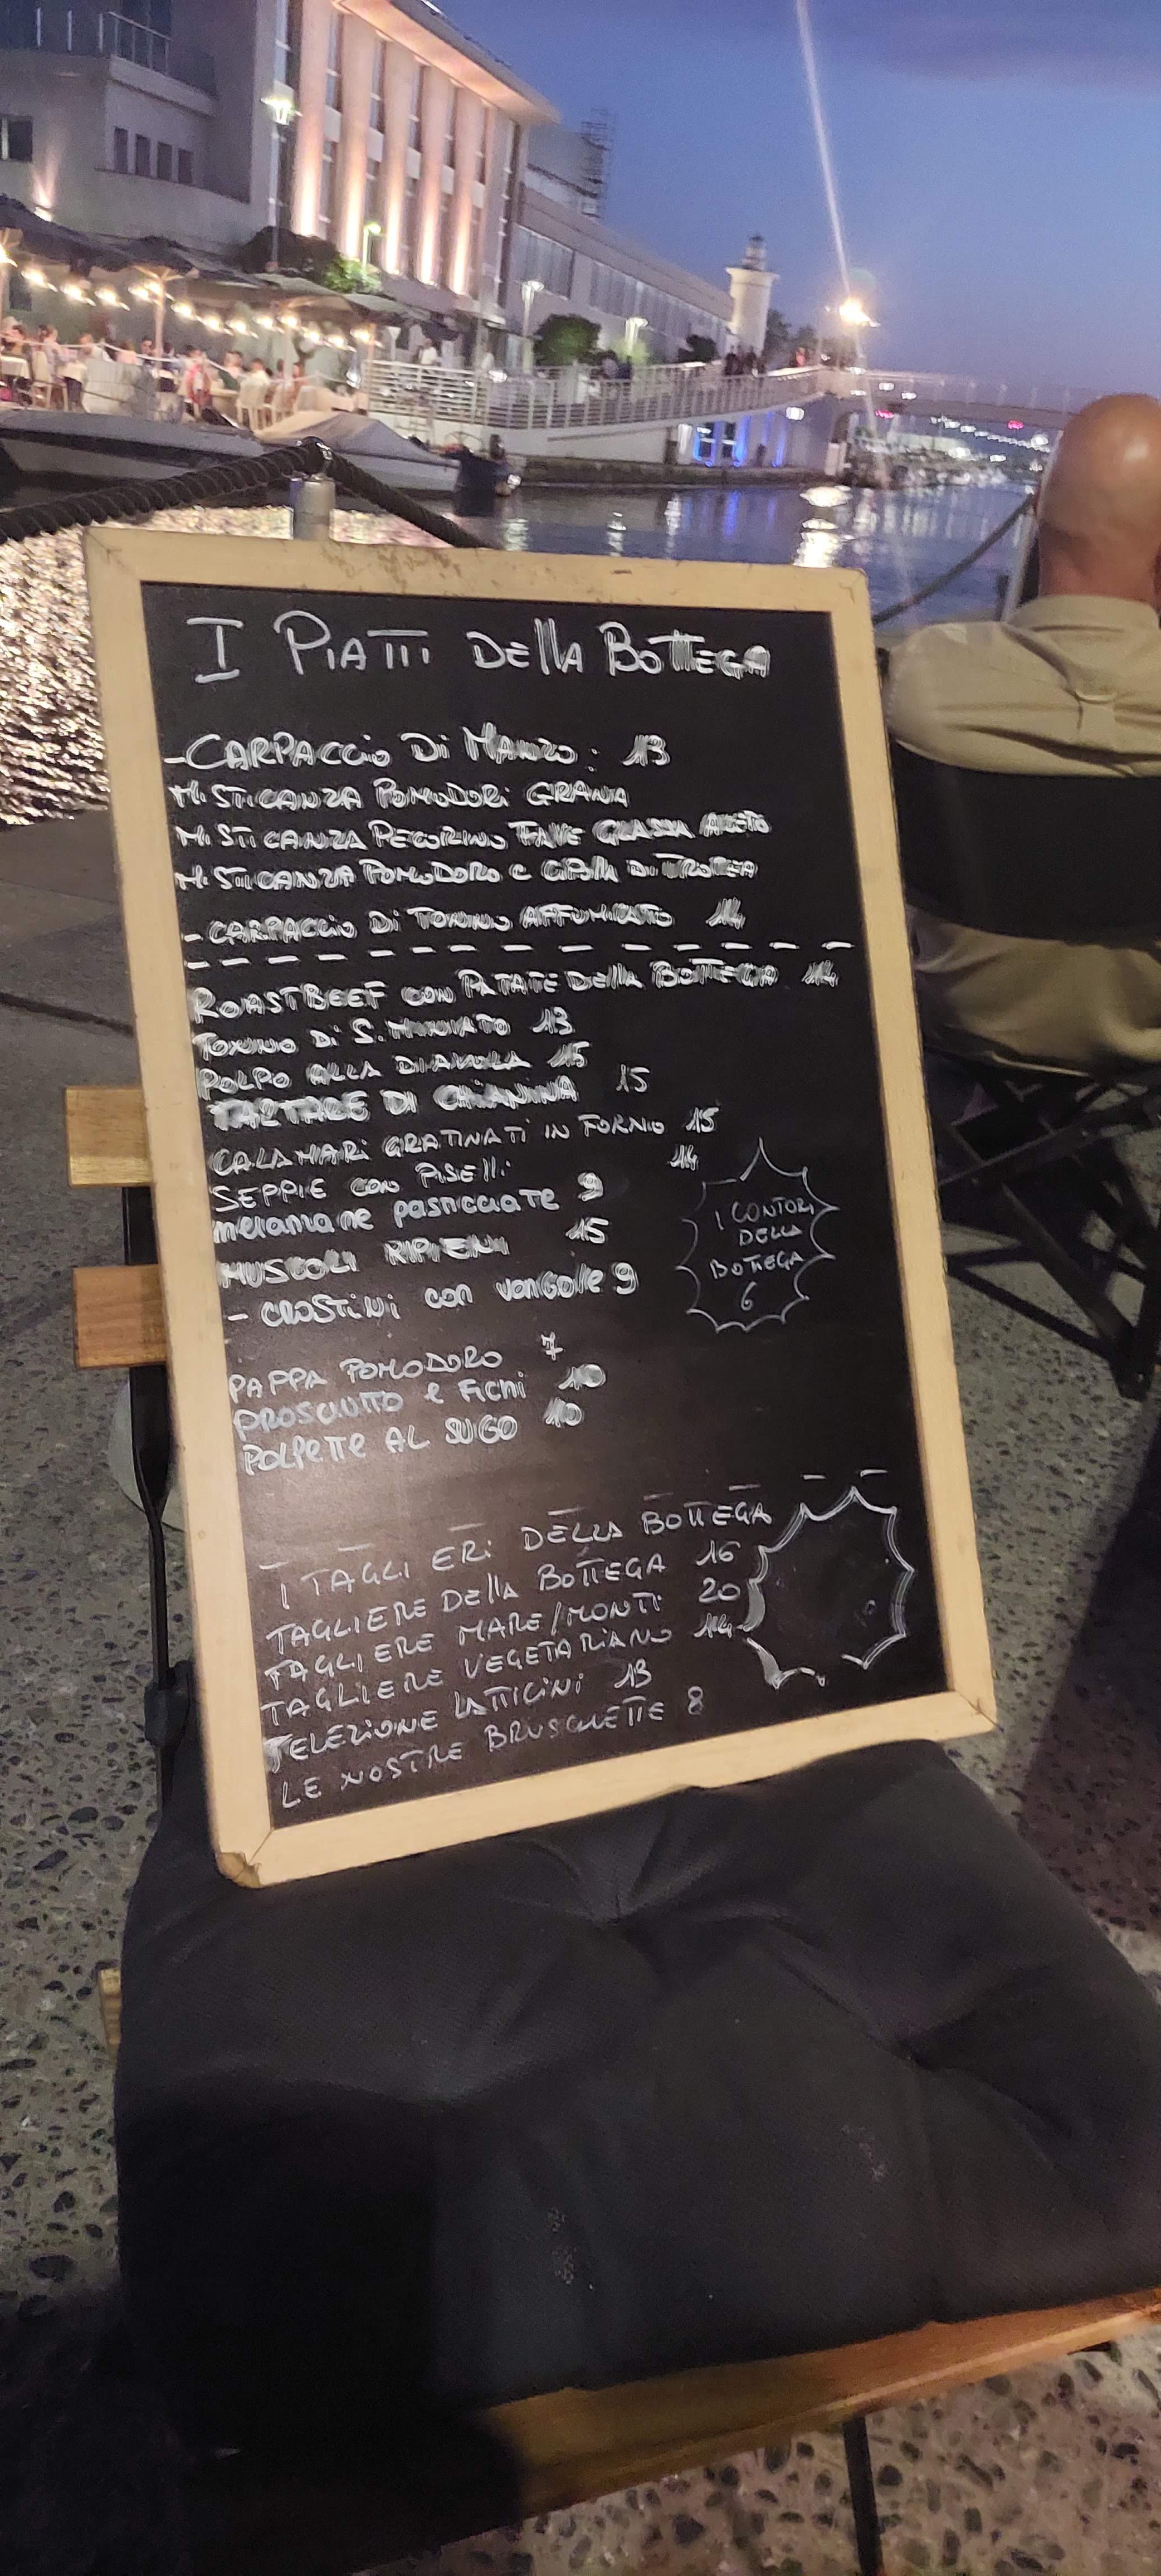 I PIATTI DELLA BOTTEGA
- CARPACCIO DI MANZO: 13
MISTICANZA POMODORI GRANA
MISTICANZA PECORINO FAVE GLASSA ACETO
MISTICANZA POMODORO E CIPOLLA DI TROPEA
- CARPACCIO DI TONNO AFFUMICATO 14
ROASTBEEF CON PATATE DELLA BOTTEGA 14
TONNO DI S. MINIATO 13
POLPO ALLA DIAVOLA 15
TARTARE DI CHIANINA 15
CALAMARI GRATINATI IN FORNO 15
SEPPIE CON PISELLI 14
melanzane pasticciate 9
MUSCOLI RIPIENI 15
- CROSTINI con vongole 9
I CONTORI
DELLA
BOTTEGA
6
PAPPA POMODORO 7
PROSCIUTTO e FICHI 10
POLPETTE AL SUGO 10
I TAGLIERI DELLA BOTTEGA
TAGLIERE DELLA BOTTEGA 16
TAGLIERE MARE/MONTI 20
TAGLIERE VEGETARIANO 14
SELEZIONE LATTICINI 13
LE NOSTRE BRUSCHETTE 8